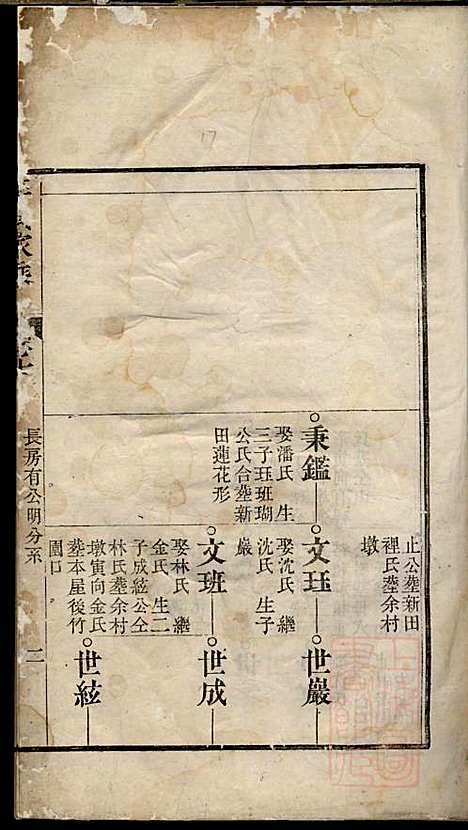 17
止公塟新田
裡氏塟余村
墩
秉鑑
娶潘氏 生
三子珏班瑚
公氏合塟新
田蓮花形
文珏
娶沈氏 繼
沈氏 生子
巖
世巖
文班
娶林氏 繼
金氏 生二
子成絃公仝
林氏塟余村
墩寅向金氏
塟本屋後竹
園口
世成
世絃
長房有公明分系
二